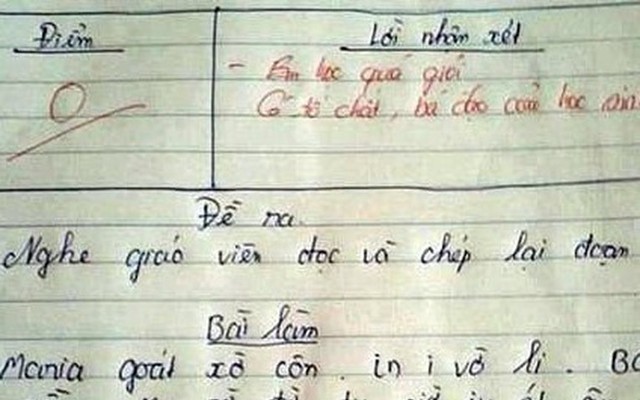 Điểm
Lời nhận xét
- Em học quá giỏi
0
Có tố chất, bá đạo của học sin
Đề ra
Nghe giáo viên đọc và chép lại đoạn
Bài làm
Maria goát xờ côn. in i vờ li. Bo